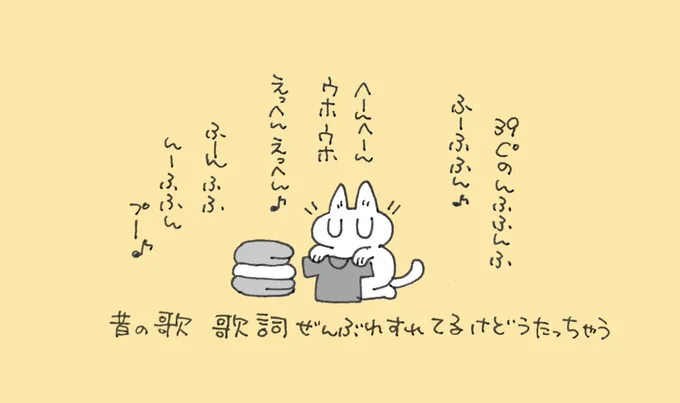 39℃のんふふんふ
ふーふふん♪
へーんへーん
ウホウホ
えっへんえっへん♪
ふーんふふ
んーふふん
プー♪
昔の歌 歌詞ぜんぶわすれてるけどうたっちゃう